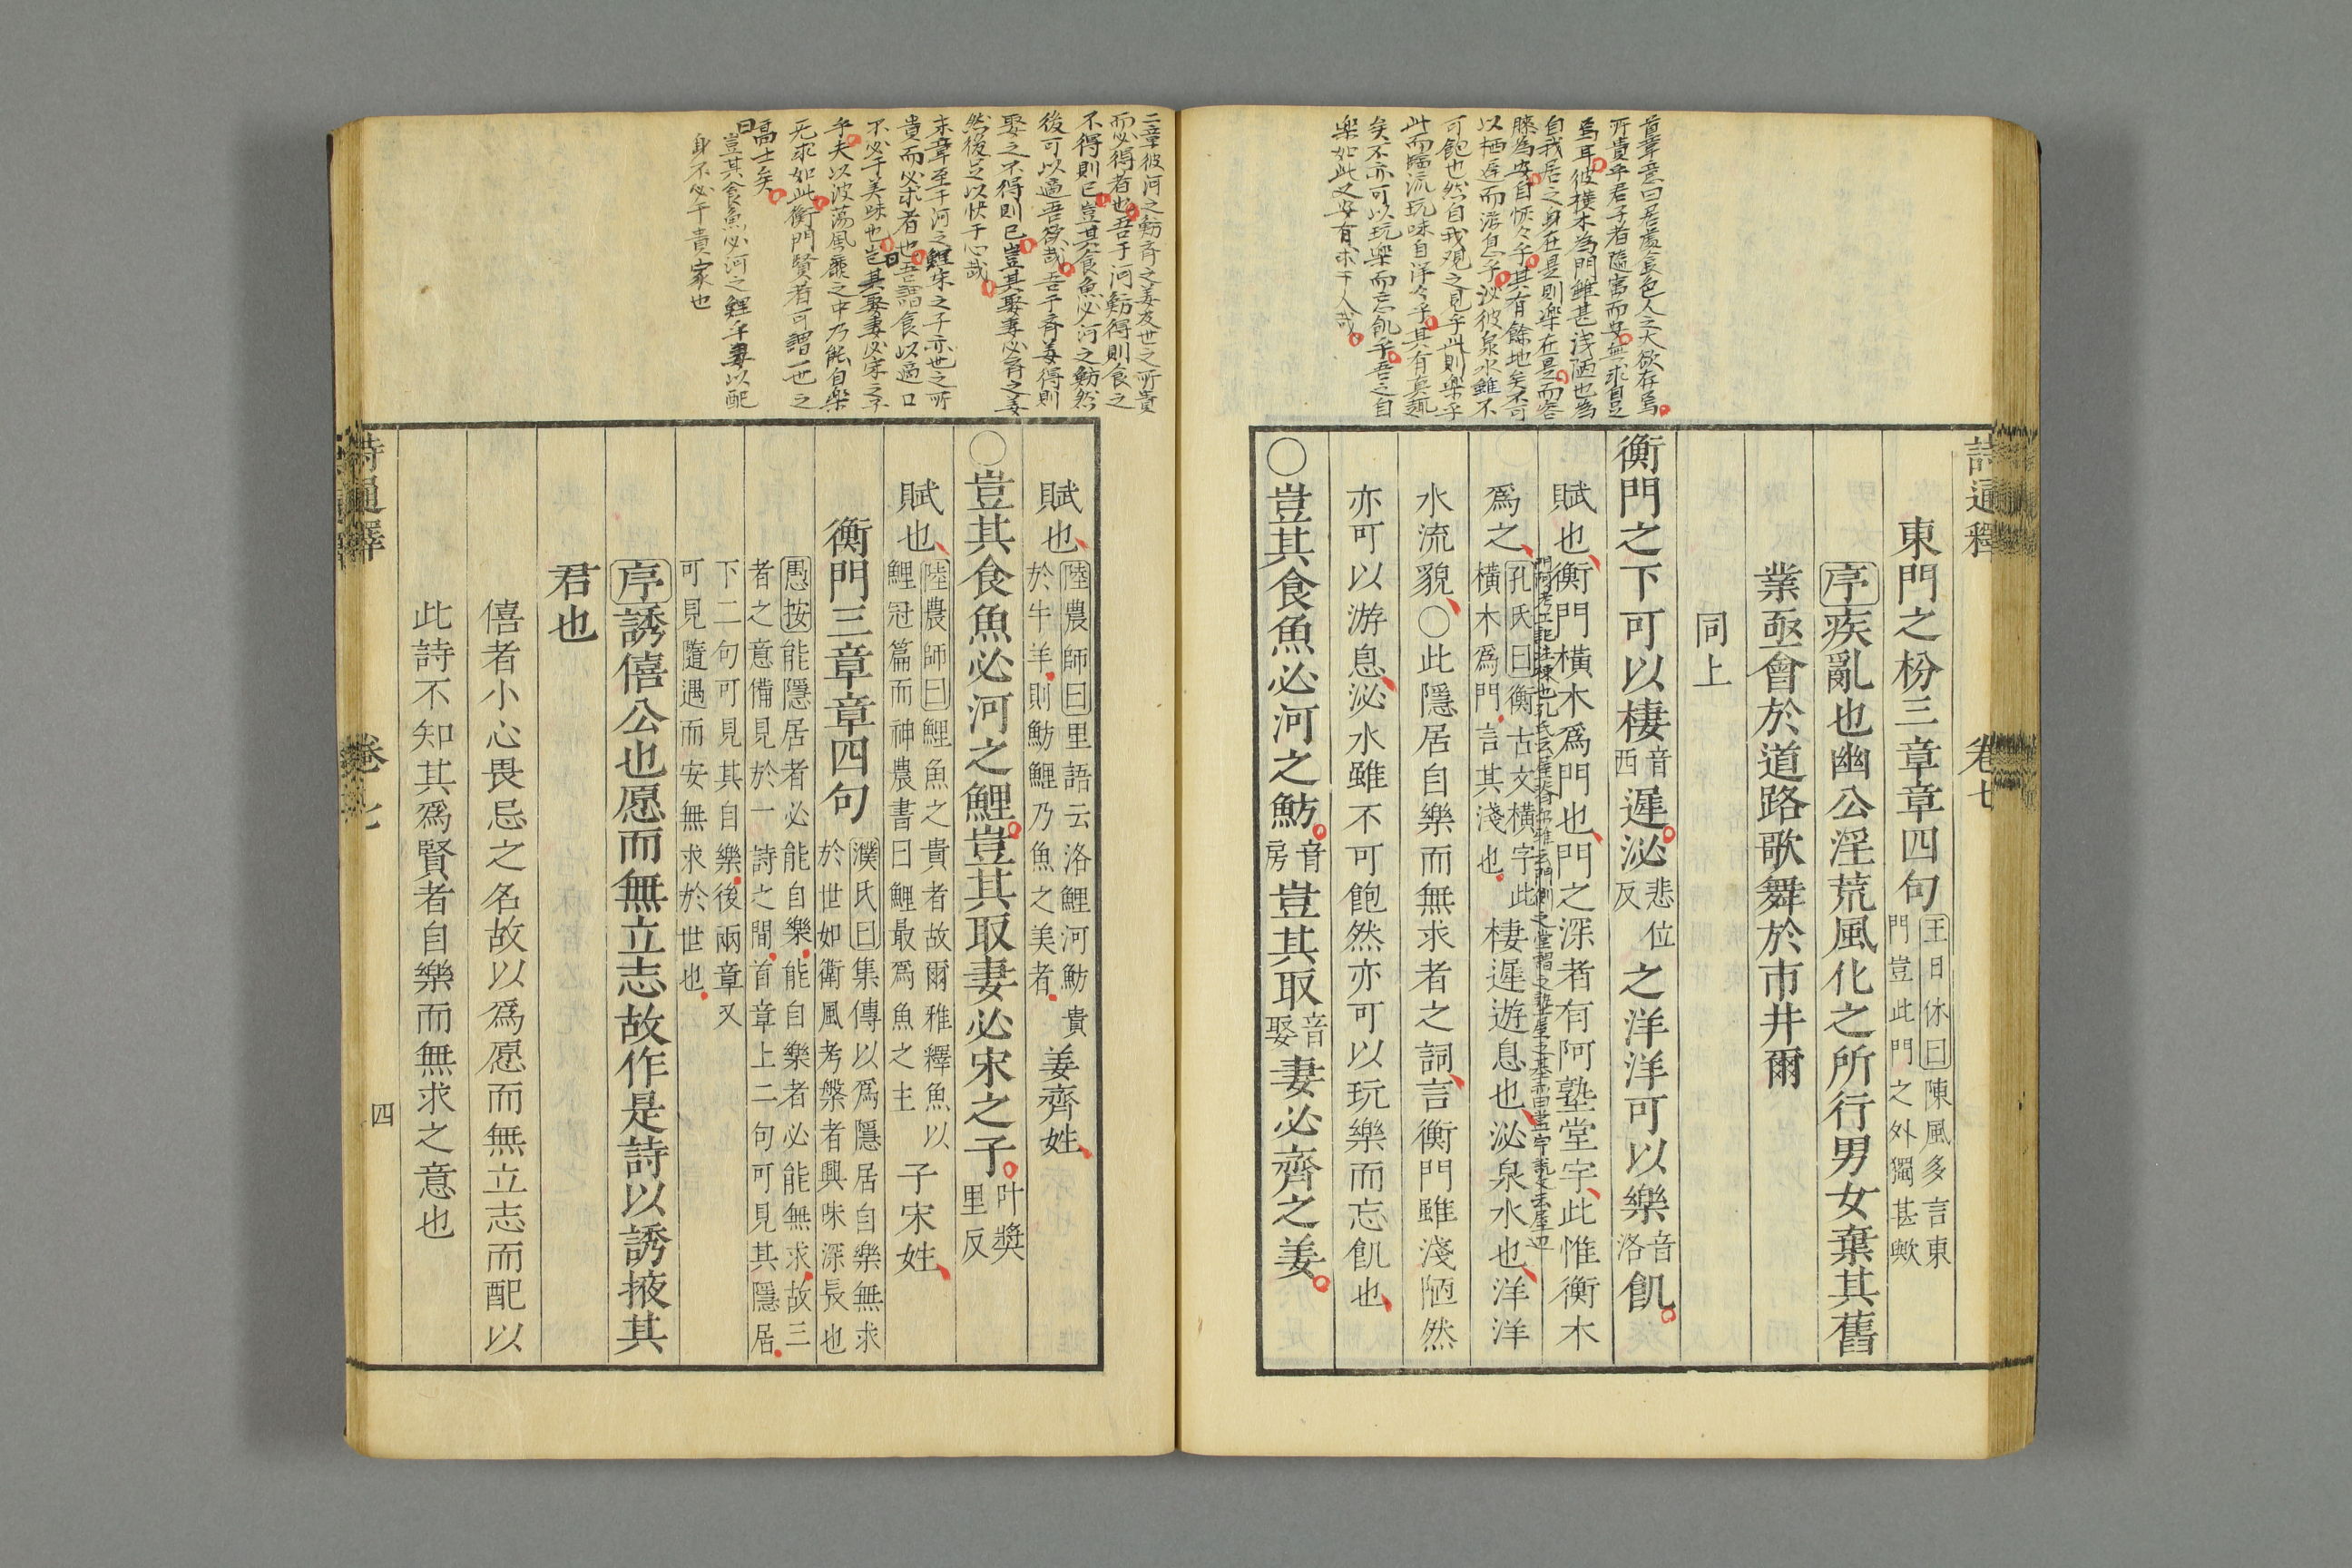 詩通釋
卷七
東門之枌三章章四句
王日休曰陳風多言東
門豈此門之外獨甚歟
序疾亂也幽公淫荒風化之所行男女棄其舊
業亟會於道路歌舞於市井爾
同上
衡門之下可以棲音西遲泌悲位反之洋洋可以樂音洛飢
賦也衡門橫木爲門也門之深者有阿塾堂宇此惟衡木
爲之孔氏曰衡古文橫字此橫木爲門言其淺也棲遲遊息也泌泉水也洋洋
水流貌○此隱居自樂而無求者之詞言衡門雖淺陋然
亦可以游息泌水雖不可飽然亦可以玩樂而忘飢也
○豈其食魚必河之魴音房豈其取音娶妻必齊之姜
首章意曰居處食色人之大欲存焉
所貴乎君子者隨寓而安無求自足
焉耳彼橫木為門雖甚淺陋也為
自我居之身在是則樂在是而容
膝為安自恢々乎其有餘地矣不可
以栖遲而游息乎泌彼泉水雖不
可飽也然自我觀之見乎此則樂乎
此而臨流玩味自洋々乎其有真趣
矣不亦可以玩樂而忘飢乎吾之自
樂如此又安有求于人哉
二章彼河之魴齊之姜及世之所貴
而必得者也吾于河魴得則食之
不得則已豈其食魚必河之魴然
後可以適吾欲哉吾于齊姜得則
娶之不得則已豈其娶妻必齊之姜
然後足以快于心哉
末章至于河之鯉宋之子亦世之所
貴而必求者也吾謂食以適口
不必于美味也豈其娶妻必宋之子
乎夫以波蕩風靡之中乃能自樂
无求如此衡門賢者可謂一世之
高士矣
曰豈其食魚必河之鯉乎妻以配
身不必于貴家也
賦也陸農師曰里語云洛鯉河魴貴於牛羊則魴鯉乃魚之美者姜齊姓
○豈其食魚必河之鯉豈其取妻必宋之子叶奬里反
賦也陸農師曰鯉魚之貴者故爾雅釋魚以鯉冠篇而神農書曰鯉最爲魚之主子宋姓
衡門三章章四句
濮氏曰集傳以爲隱居自樂無求
於世如衛風考槃者興味深長也
愚按能隱居者必能自樂能自樂者必能無求故三
者之意備見於一詩之間首章上二句可見其隱居
下二句可見其自樂後兩章又
可見隨遇而安無求於世也
序誘僖公也愿而無立志故作是詩以誘掖其
君也
僖者小心畏忌之名故以爲愿而無立志而配以
此詩不知其爲賢者自樂而無求之意也
詩通釋
卷七
四